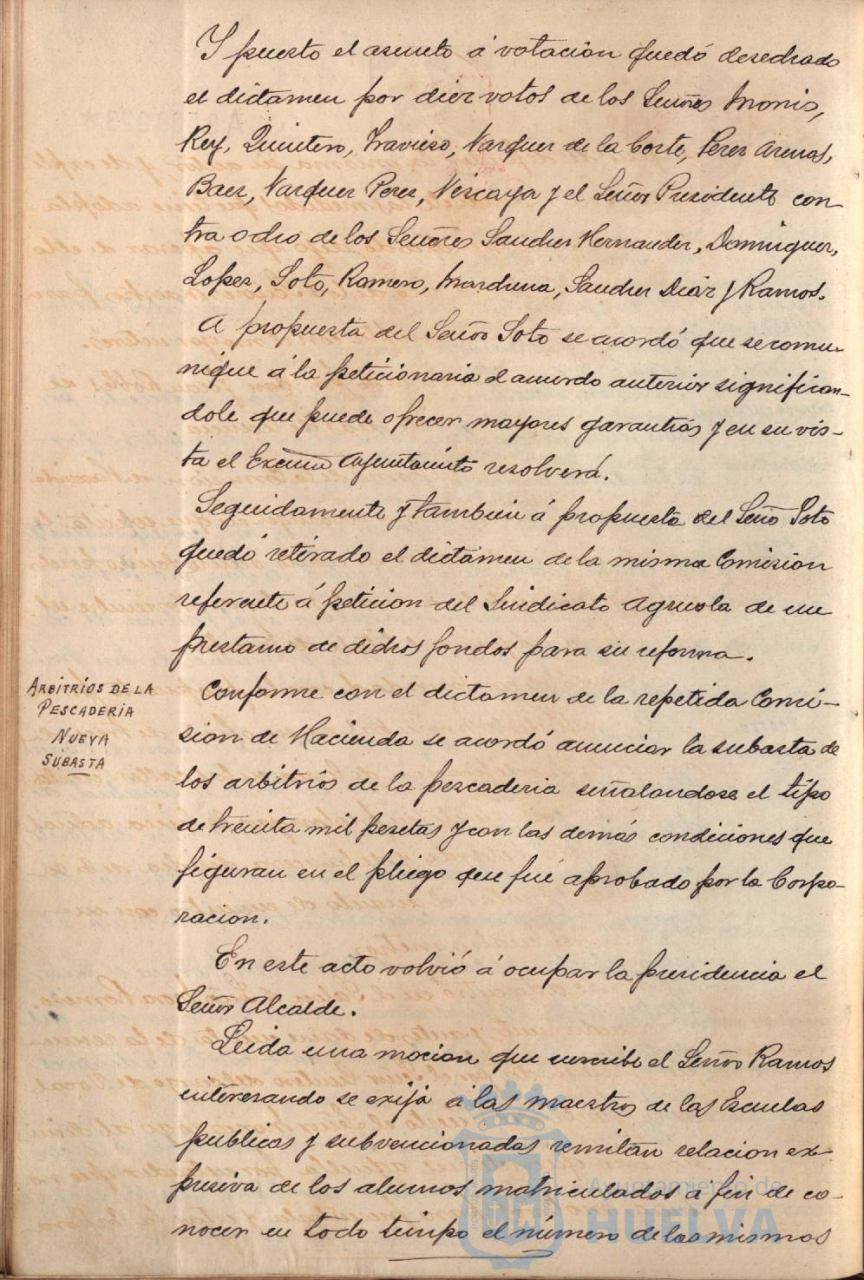 Y puesto el asunto á votacion quedó desechado
el dictamen por diez votos de los Señores Monis,
Rey, Quintero, Travieso, Vazquez de la Corte, Perez Arenas,
Baez, Vazquez Perez, Vizcaya y el Señor Presidente con-
tra ocho de los Señores Sanchez Hernandez, Dominguez,
Lopez, Soto, Ramero, Marchena, Sanchez Diaz y Ramos.
A propuesta del Señor Soto se acordó que se comu-
nique á la peticionaria el acuerdo anterior significan-
dole que puede ofrecer mayores garantías y en su vis-
ta el Excmo Ayuntamito resolverá.
Seguidamente y tambien á propuesta del Señor Soto
quedó retirado el dictamen de la misma Comision
referente á peticion del Sindicato Agricola de un
prestamo de dichos fondos para su reforma.
ARBITRIOS DE LA
PESCADERIA
NUEVA
SUBASTA
Conforme con el dictamen de la repetida Comi-
sion de Hacienda se acordó anunciar la subasta de
los arbitrios de la pescaderia señalandose el tipo
de treinta mil pesetas y con las demás condiciones que
figuran en el pliego que fué aprobado por la Corpo-
racion.
En este acto volvió á ocupar la presidencia el
Señor Alcalde.
Leida una mocion que suscribe el Señor Ramos
interesando se exija á los maestros de las Escuelas
publicas y subvencionadas remitan relacion ex-
presiva de los alumos matriculados a fin de co-
nocer en todo tiempo el número de los mismos
Ayuntamiento de
HUELVA